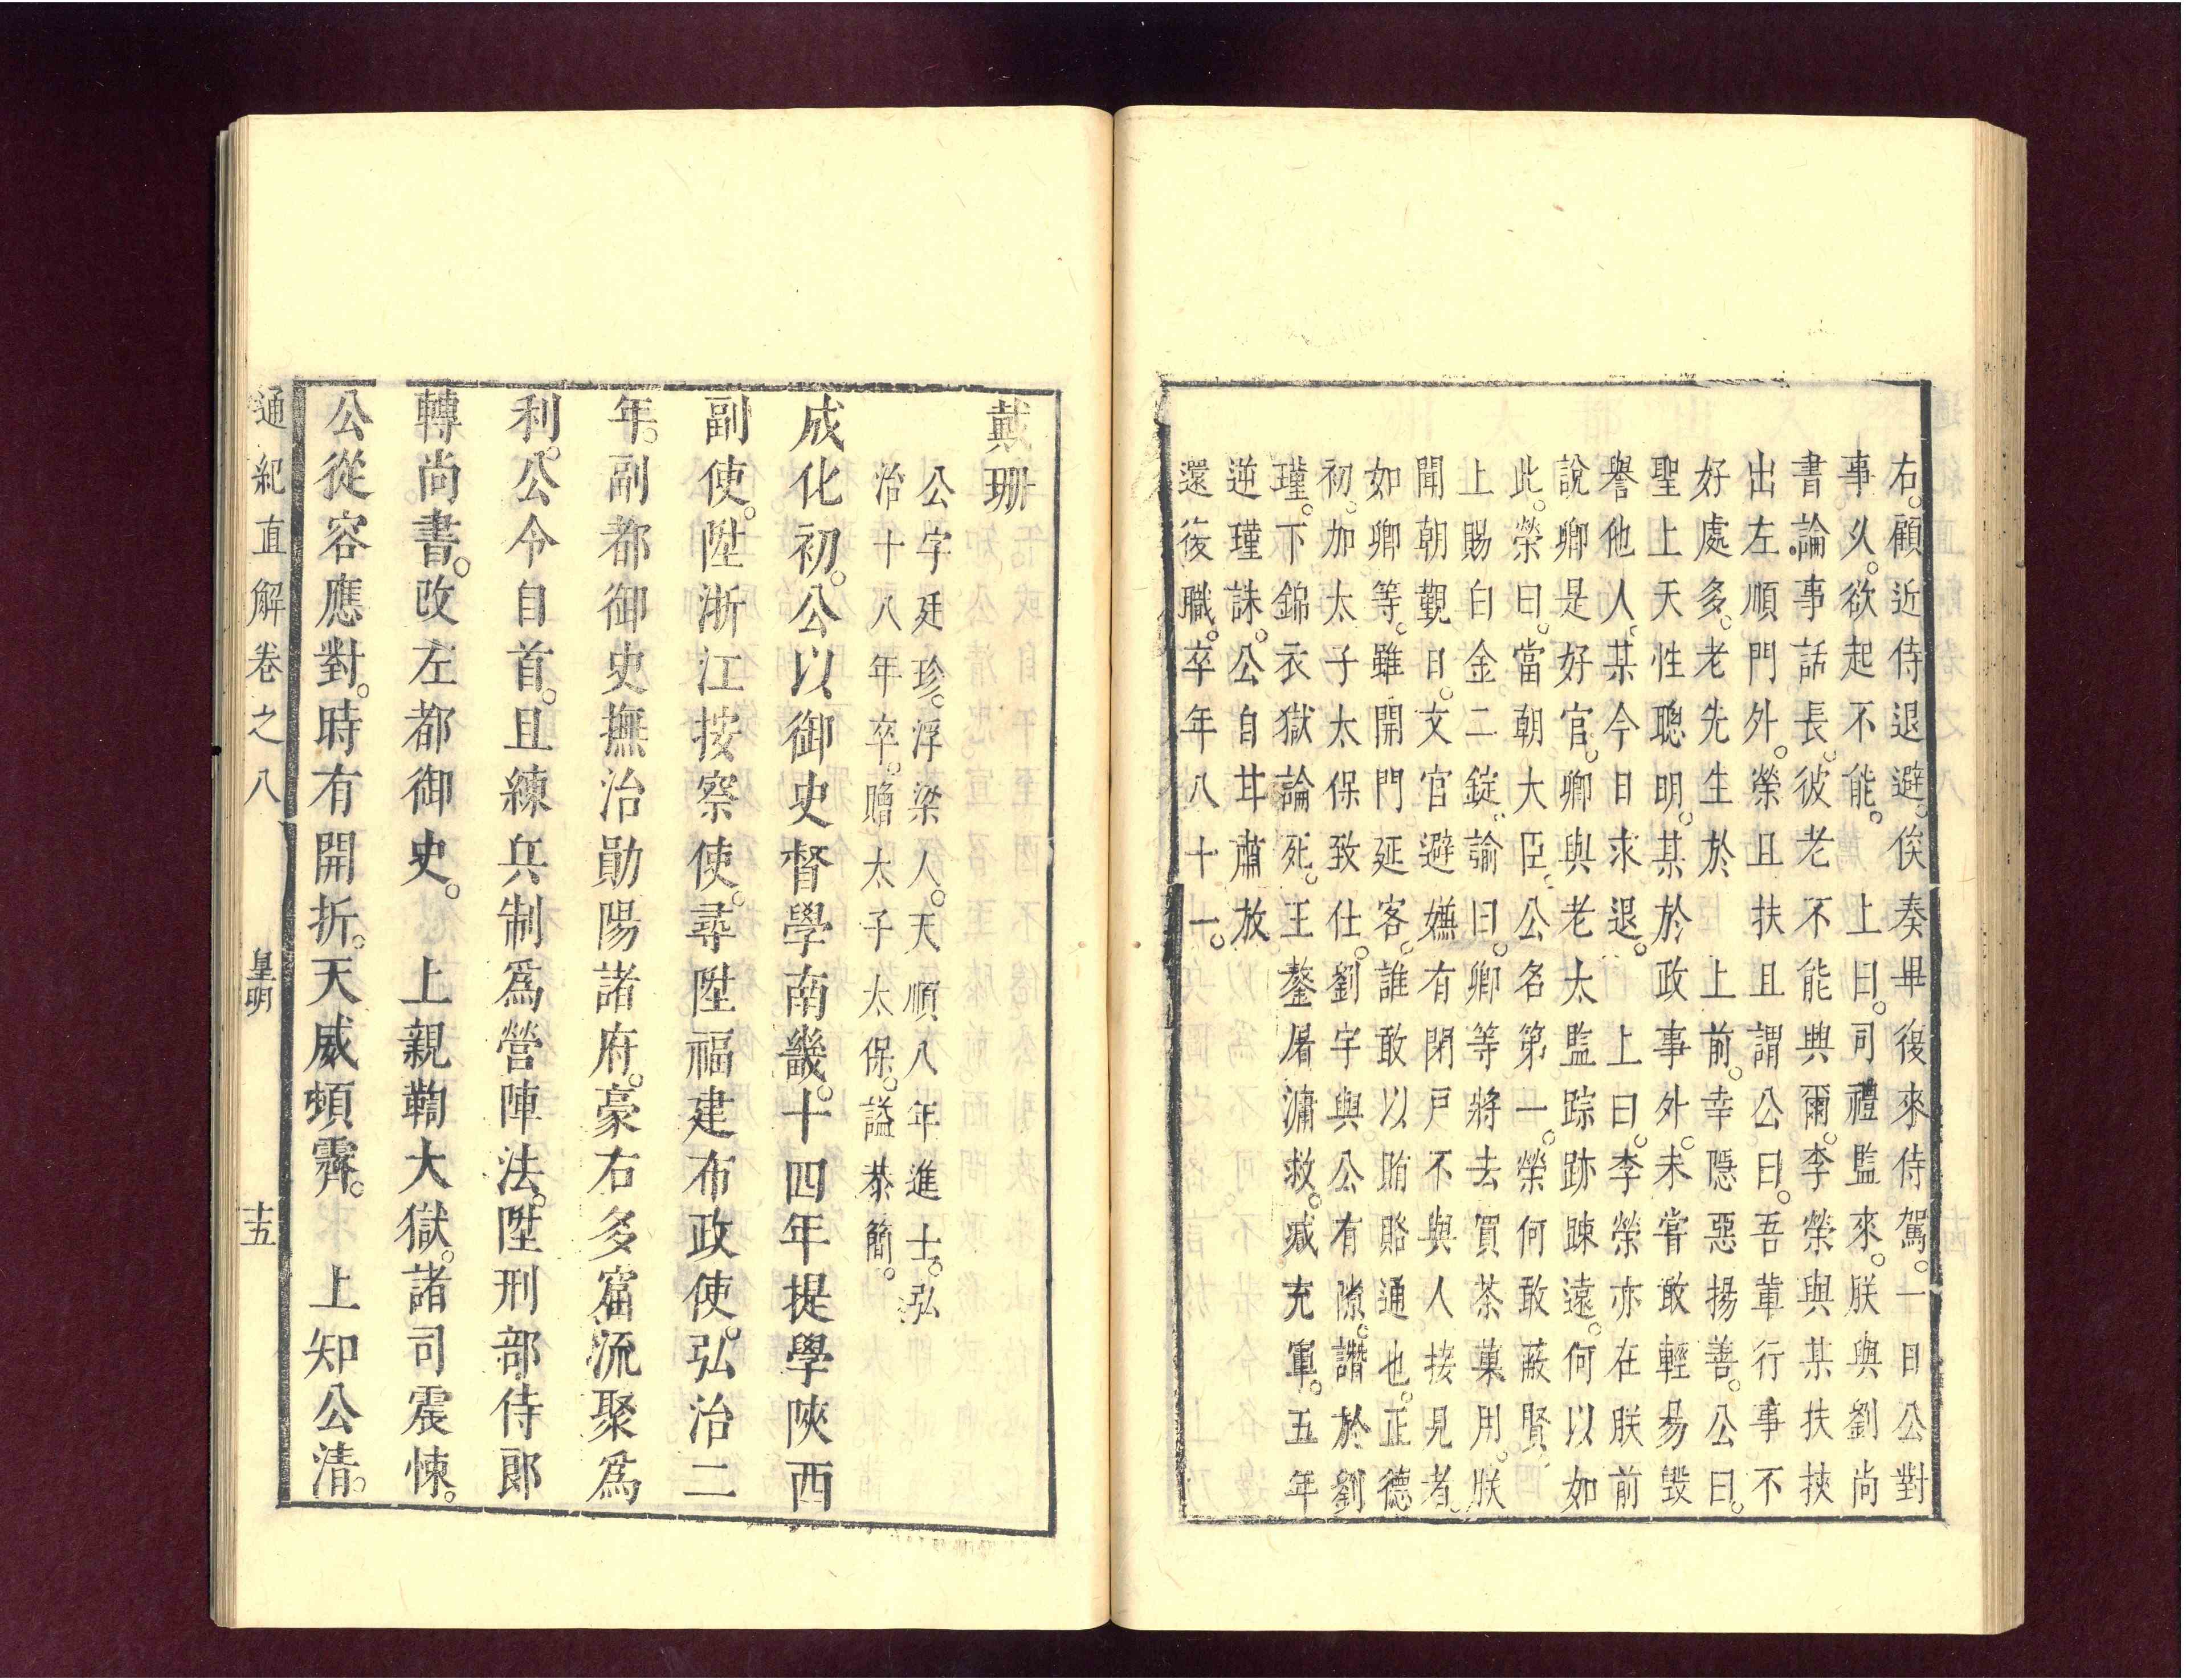 右。顧近侍退避。俟奏畢復來侍駕。一日公對
事久。欲起不能。　上曰。司禮監來。朕與劉尚
書論事話長。彼老不能與爾。李榮與某扶挾
出左順門外。榮且扶且謂公曰。吾輩行事不
好處多。老先生於　上前。幸隱惡揚善。公曰。
聖上天性聰明。某於　政事外。未嘗敢輕易毀
譽他人。某今日求退。　上曰。李榮亦在朕前
說卿是好官。卿與老太監踪跡踈遠。何以如
此。榮曰。當朝大臣。公名第一。榮何敢蔽賢。
上賜白金二錠。諭曰。卿等將去買茶菓用。朕
聞朝覲日。文官避嫌。有閉戸不與人接見者。
如卿等。雖開門延客。誰敢以賄賂通也。正德
初。加太子太保致仕。劉宇與公有隙。譖於劉
瑾。下錦衣獄論死。王鏊屠滽救。减充軍。五年
逆瑾誅。公自甘肅放
還復職。卒年八十一。
戴珊
公字廷珍。浮梁人。天順八年進士。弘
治十八年卒。贈太子太保。謚恭簡。
成化初。公以御史督學南畿。十四年提學陝西
副使。陞浙江按察使。尋陞福建布政使。弘治二
年。副都御史撫治鄖陽諸府。豪右多窩流聚爲
利。公令自首。且練兵制爲營陣法。陞刑部侍郎
轉尚書。改左都御史。　上親鞫大獄。諸司震悚。
公從容應對。時有開折。天威頓霽。　上知公清。
通紀直解卷之八　皇明　十五